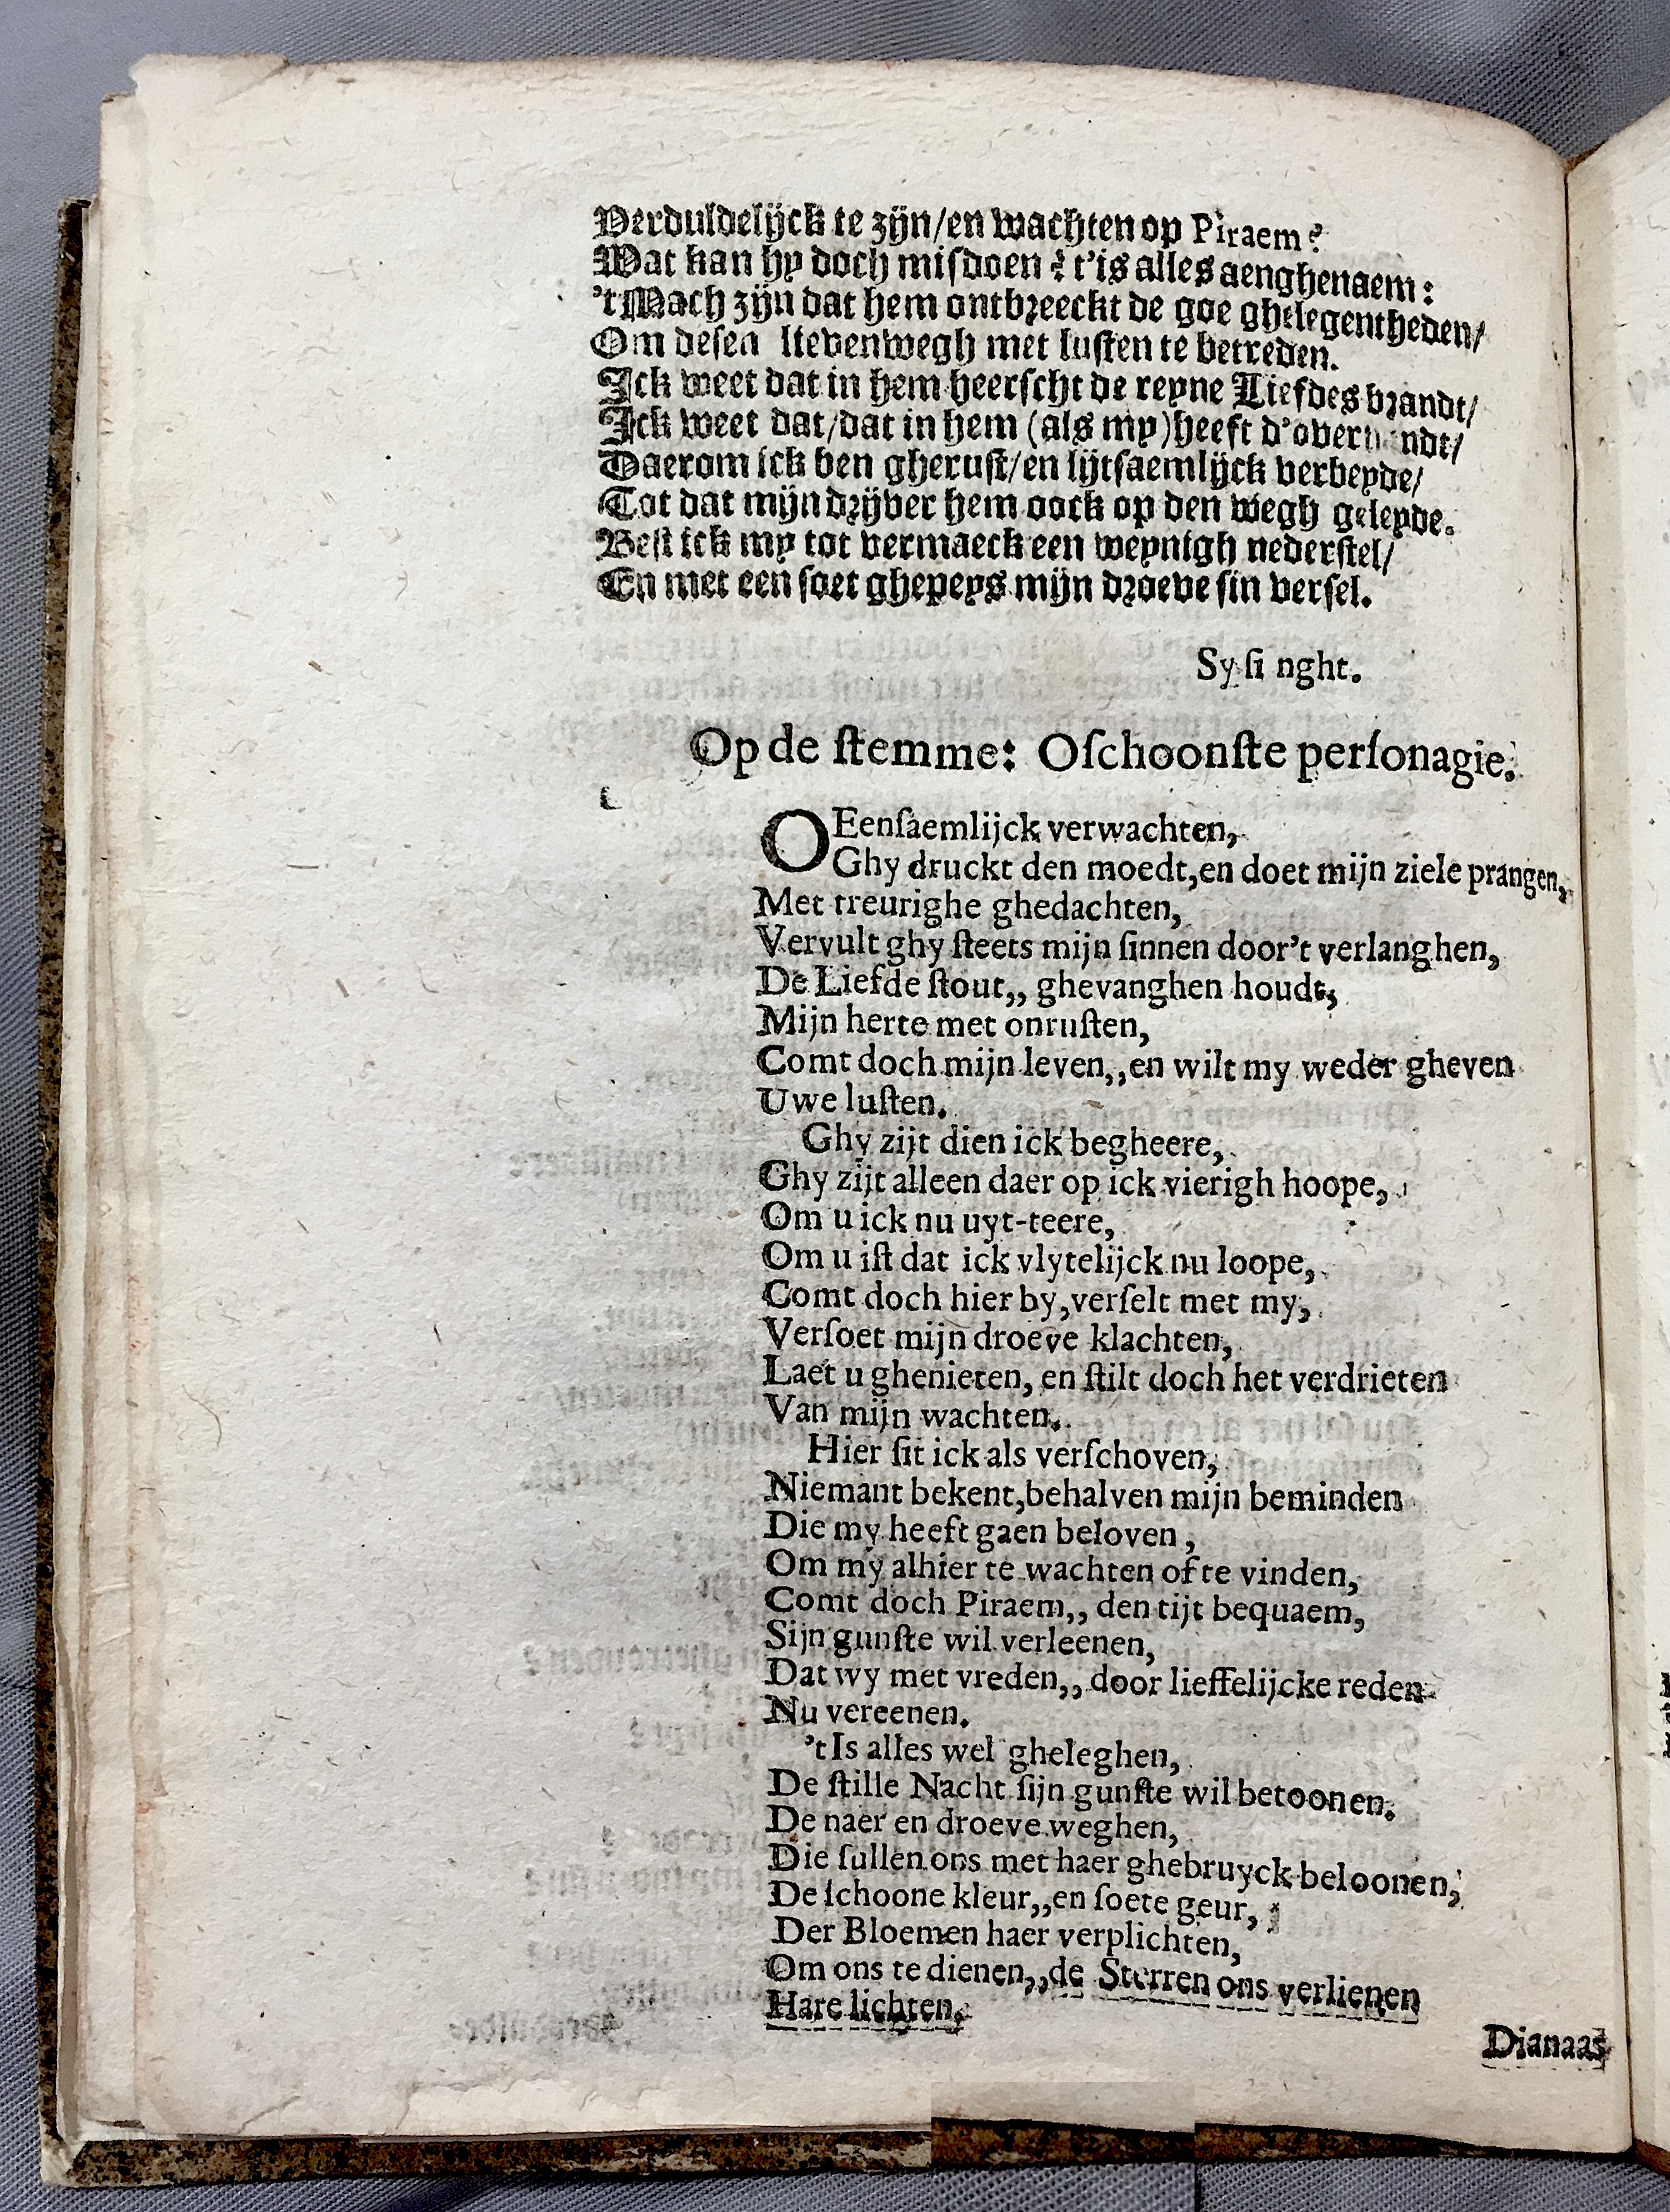 Verduldelijck te zijn/en wachten op Piraem?
Wat kan hy doch misdoen? t'is alles aenghenaem:
't Mach zijn dat hem ontbreeckt de goe ghelegentheden/
Om desen lievenwegh met lusten te betreden.
Ick weet dat in hem heerscht de reyne Liefdes brandt/
Ick weet dat/dat in hem (als my) heeft d'overhandt/
Daerom ick ben gherust/en lijtsaemlijck verbeyde/
Tot dat mijn drijver hem oock op den wegh geleyde.
Best ick my tot vermaeck een weynigh nederstel/
En met een soet ghepeys mijn droeve sin versel.
Sy si nght.
Op de stemme: O schoonste personagie.
O Eensaemlijck verwachten,
Ghy druckt den moedt, en doet mijn ziele prangen,
Met treurighe ghedachten,
Vervult ghy steets mijn sinnen door't verlanghen,
De Liefde stout,, ghevanghen houdt,
Mijn herte met onrusten,
Comt doch mijn leven,, en wilt my weder gheven
Uwe lusten.
Ghy zijt dien ick begheere,
Ghy zijt alleen daer op ick vierigh hoope,
Om u ick nu uyt-teere,
Om u ist dat ick vlytelijck nu loope,
Comt doch hier by, verselt met my,
Versoet mijn droeve klachten,
Laet u ghenieten, en stilt doch het verdrieten
Van mijn wachten.
Hier sit ick als verschoven,
Niemant bekent, behalven mijn beminden
Die my heeft gaen beloven,
Om my alhier te wachten ofte vinden,
Comt doch Piraem,, den tijt bequaem,
Sijn gunste wil verleenen,
Dat wy met vreden,, door lieffelijcke reden
Nu vereenen.
't Is alles wel gheleghen,
De stille Nacht sijn gunste wil betoonen.
De naer en droeve weghen,
Die sullen ons met haer ghebruyck beloonen,
De schoone kleur,, en soete geur,
Der Bloemen haer verplichten,
Om ons te dienen,, de Sterren ons verlienen
Hare lichten.
Dianaas